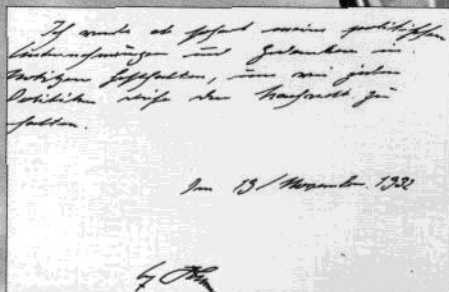 Ich werde ab sofort meine politischen
Unternehmungen und Gedanken in
Notizen festhalten, um wie jeder
Politiker der Nachwelt zu
halten.
Im November. 1932